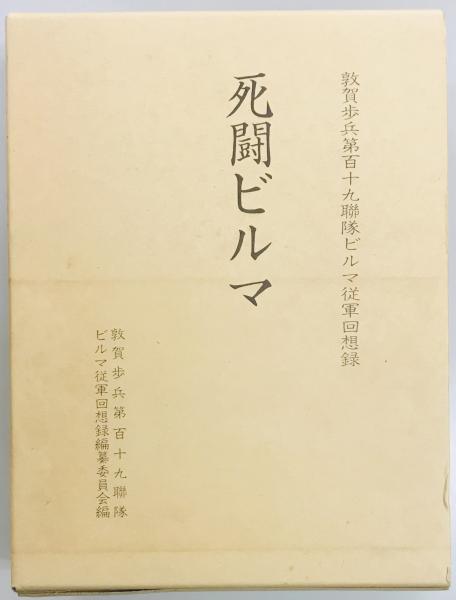 敦賀歩兵第百十九聯隊ビルマ従軍回想録
死闘ビルマ
敦賀歩兵第百十九聯隊
ビルマ従軍回想録編纂委員会編